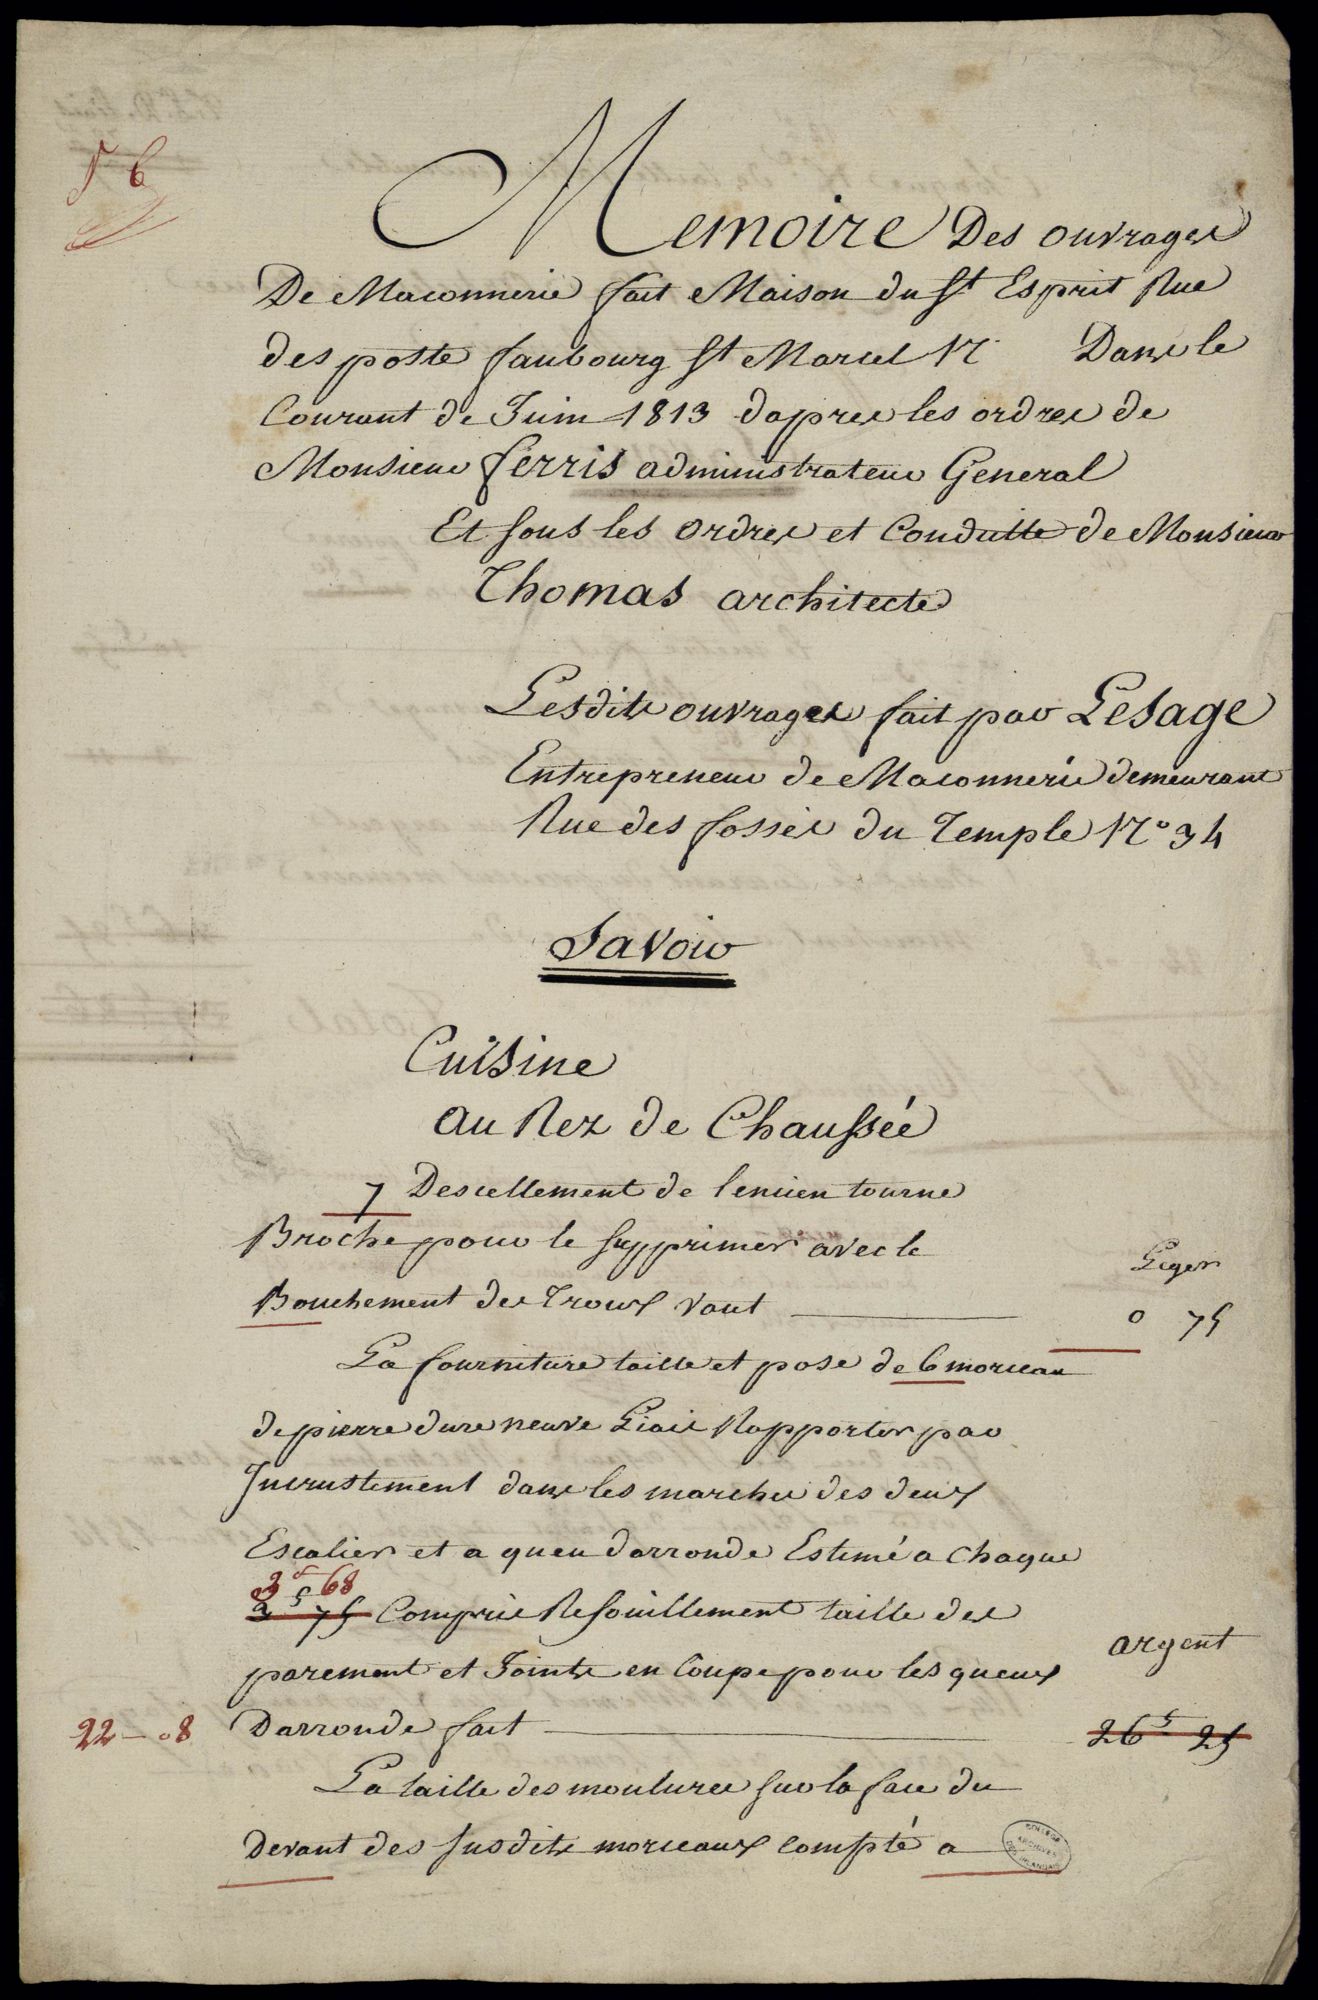 N° 6
Memoire Des ouvrages
De Maconnerie fait Maison du St Esprit Rue
des poste faubourg St Marcel N° Dans le
Courant de Juin 1813 dapres les ordres de
Monsieur ferris administrateur General
Et sous les ordres et Conduitte de Monsieur
Thomas architecte
Lesdits ouvrages fait par Lesage
Entrepreneur de Maconnerie demeurant
Rue des fossés du Temple N° 34
Savoir
Cuisine
au Rez de Chaussée
7 Descellement de lencien tourne
Broche pour le supprimer avec le
Leger
Bouchement des Troux vaut
0 75
La fourniture taille et pose de 6 morceau
de pierre dure neuve Liais Rapporter par
Incrustement dans les marches des deux
Escalier et a queu darronde Estimé a chaque
3f 68
3f 75 Compris Refouillement taille des
argent
parement et Joints en Coupe pour les queux
22 - 08 Darronde fait
26f 25
La taille des moulures sur la face du
Devant des susdits morceaux compté a
COLLEGE
ARCHIVES
DES IRLANDAIS